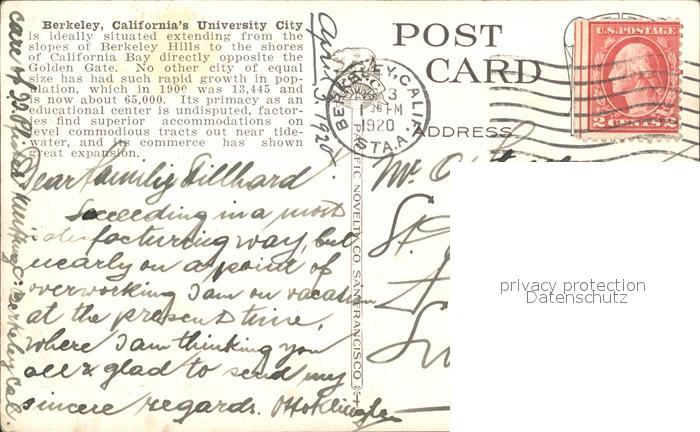 Berkeley, California's University City
is ideally situated extending from the
slopes of Berkeley Hills to the shores
of California Bay directly opposite the
Golden Gate. No other city of equal
size has had such rapid growth in pop-
ulation, which in 1900 was 13,445 and
is now about 65,000. Its primacy as an
educational center is undisputed, factor-
ies find superior accommodations on
level commodious tracts out near tide-
water, and its commerce has shown
great expansion.
April 3, 1920
POST
CARD
ADDRESS
BERKELEY, CALIF.
3
1 30 PM
1920
STA. A.
U.S. POSTAGE
2 CENTS 2
PACIFIC NOVELTY CO. SAN FRANCISCO
Dear Family Billhard!
Succeeding in a most
satisfacturing way, but
nearly on a point of
overworking I am on vacation
at the present time,
where I am thinking you
all & glad to send my
sincere regards. Otto
care of
Berkeley Cal
Mr.
St.
privacy protection
Datenschutz